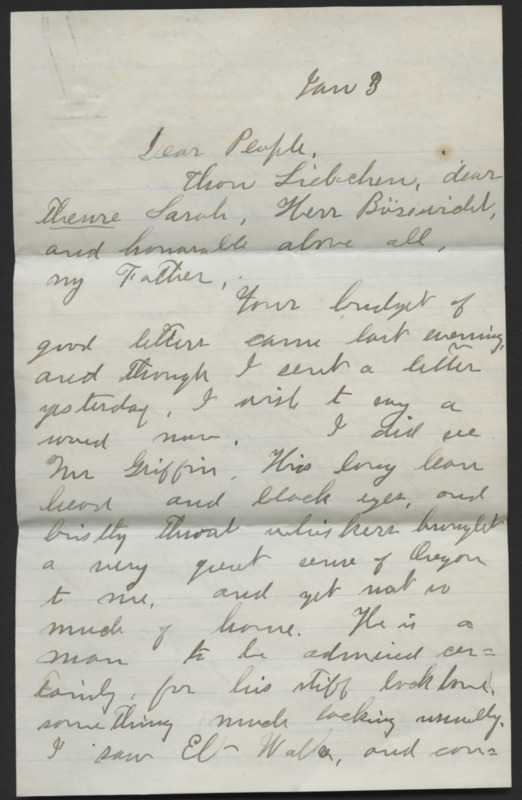 Jan 3
Dear People,
Thou Liebchen, dear
Theure Sarah, Herr Bösewicht,
and honorable above all,
my Father,
Your budget of
good letters came last evening,
and though I sent a letter
yesterday, I wish to say a
word now. I did see
Mr Griffin. His long lean
head and black eyes, and
bristly throat whiskers brought
a very great sense of Oregon
to me, and yet not so
much of home. He is a
man to be admired cer=
tainly, for his stiff backbone,
something much lacking usually.
I saw El Walker, and con=